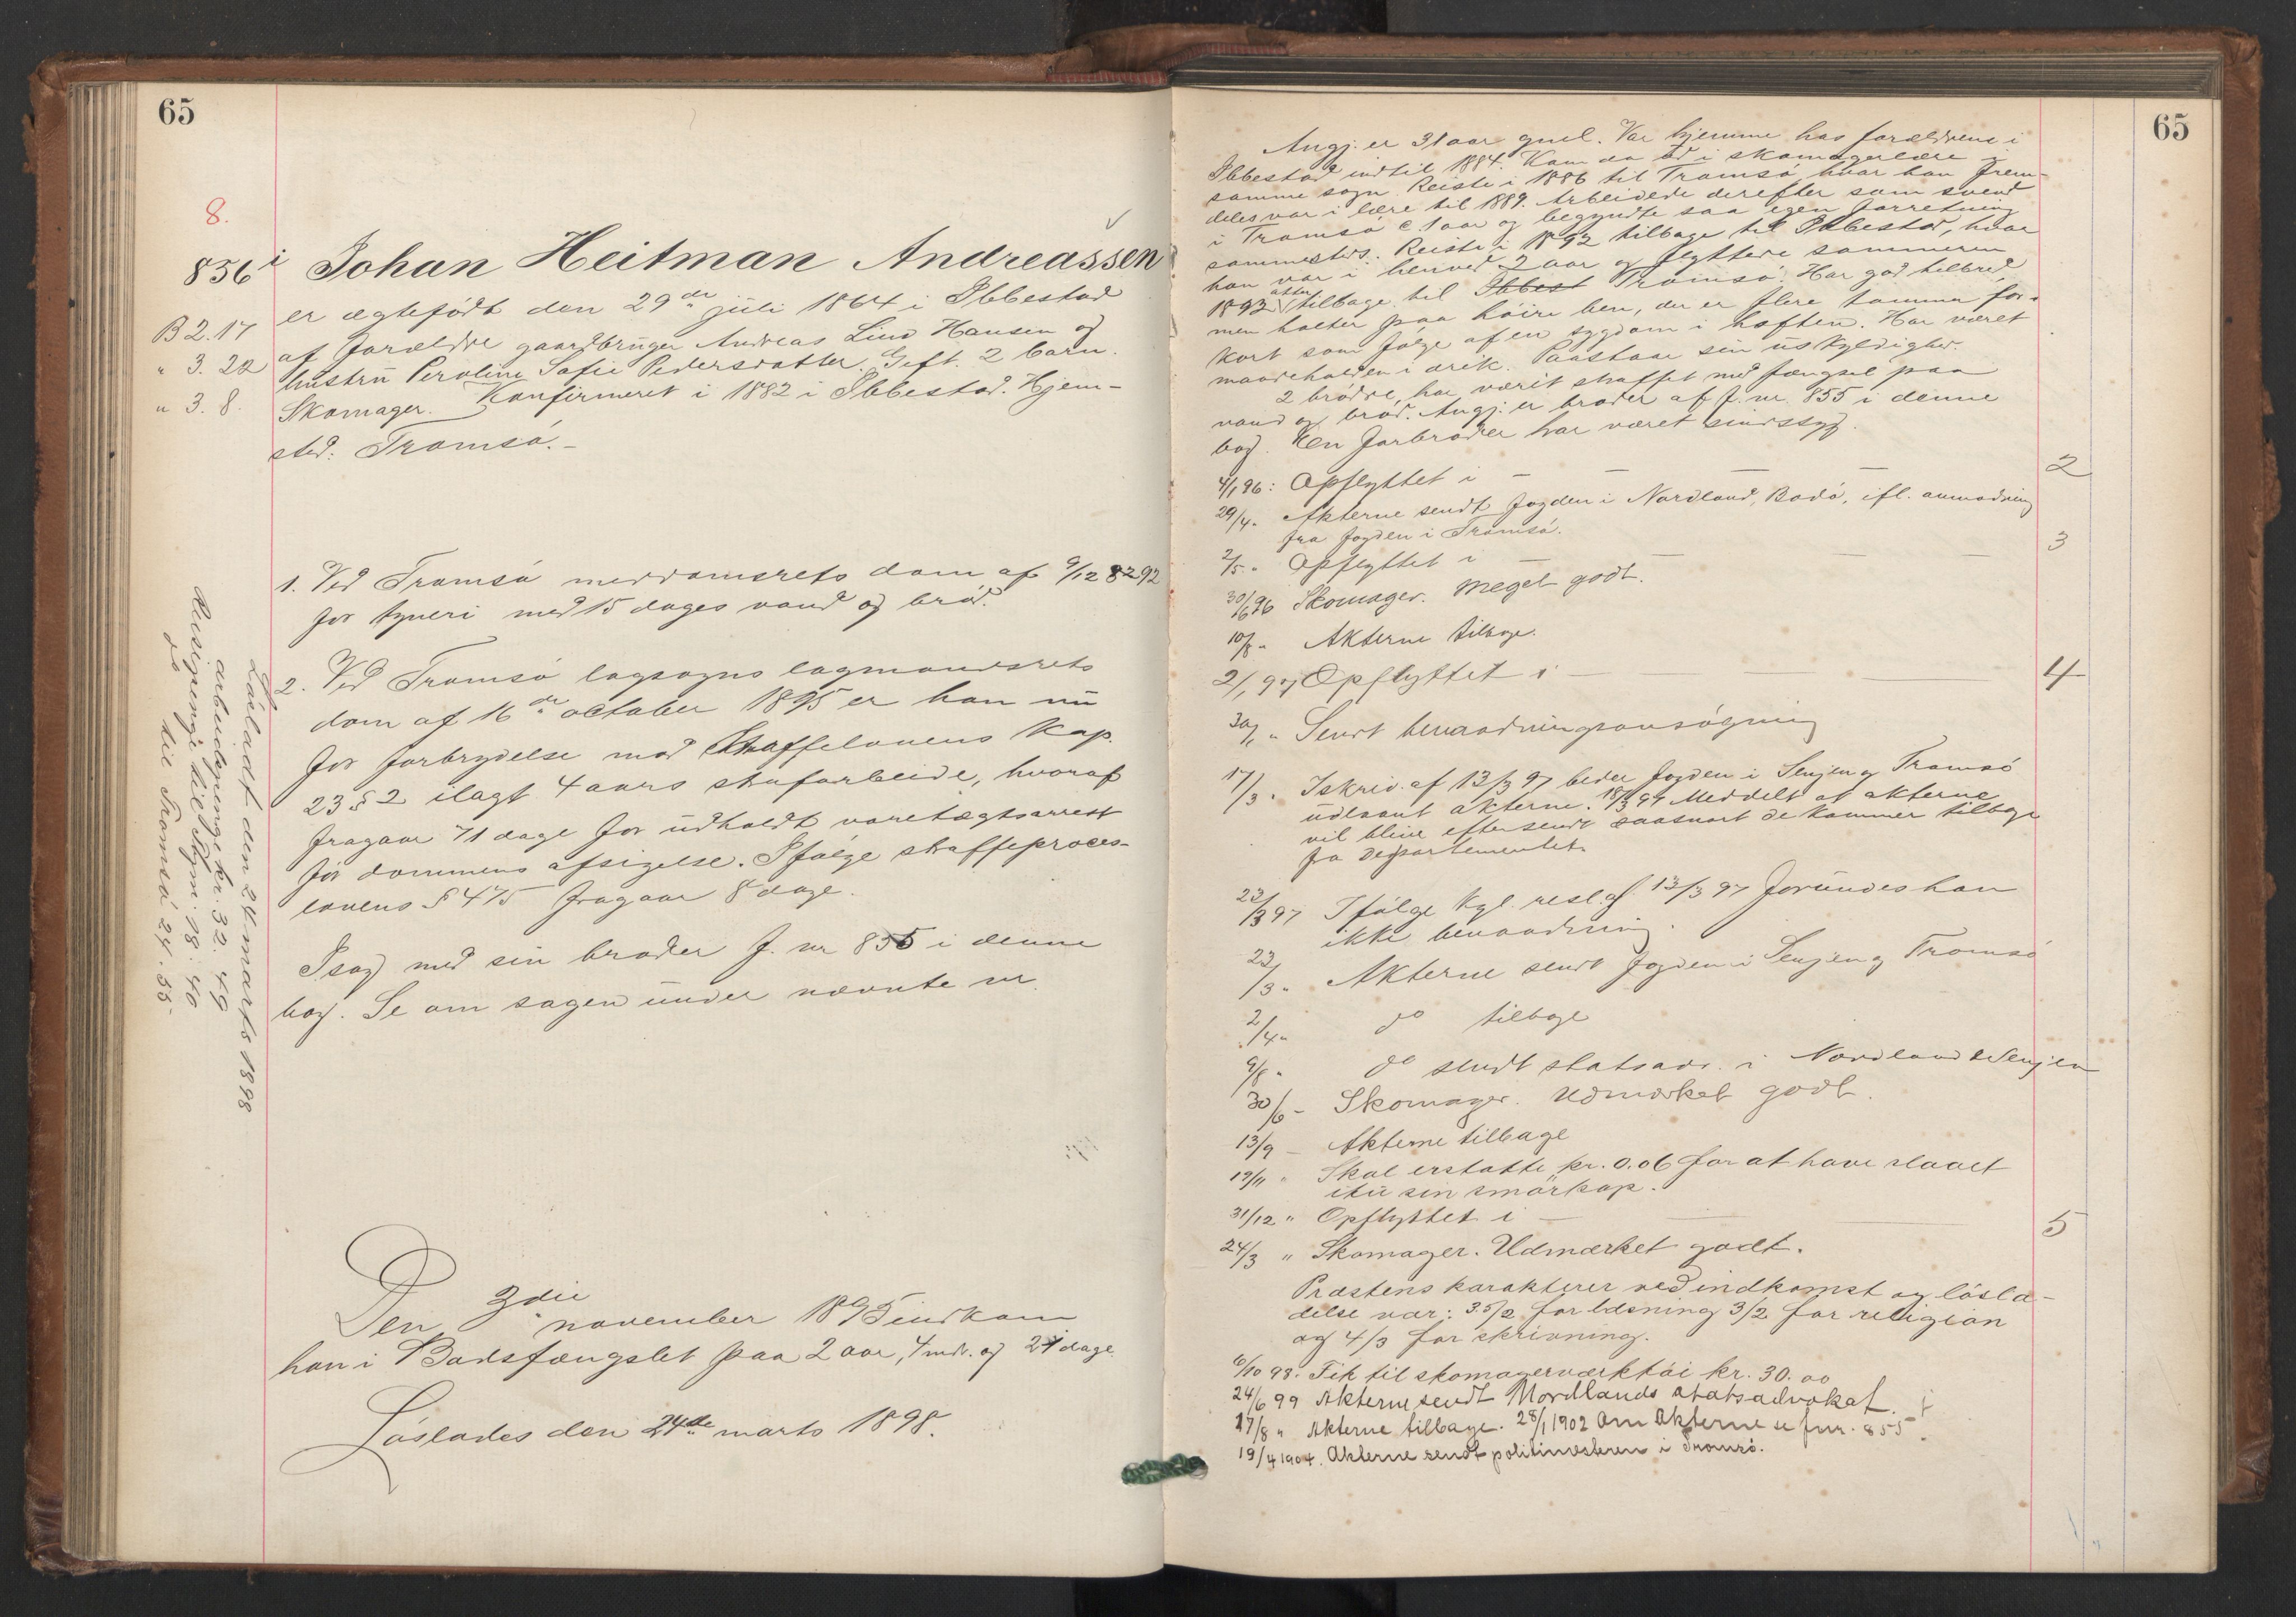 65
8.
856 i Johan Heitman Andreassen
er ægtefødt den 29de juli 1864 i Ibbestad
B 2.17
af forældre gaardbruger Andreas Lind Hansen og
" 3. 20
hustru Peroline Sofie Pedersdatter. Gift. 2 barn.
" 3. 8.
Skomager. Konfirmeret i 1882 i Ibbestad. Hjem-
sted: Tromsö.-
1. Ved Tromsö meddomsrets dom af 9/12 92
for tyveri med 15 dages vand og bröd.
2. Ved Tromsö lagsogns lagmandsrets
dom af 16de october 1895 er han nu
for forbrydelse mod Straffelovens Kap.
23 § 2 ilagt 4 aars strafarbeide, hvoraf
fragaar 71 dage for udholdt varetægtsarrest
för dommens afsigelse. Ifölge straffeproces-
lovens § 475 fragaar 8 dage.
I sag med sin broder f. nr 855 i denne
bog. Se om sagen under nævnte nr.
Lösladt den 24 marts 1898
arbeidspenge kr. 32. 49
Reisepenge til hjem. 18: 40
do til Tromsö 24. 55.
Den 3die november 1895 indkom
han i Bodsfængslet paa 2 aar, 4 mdr. og 21 dage.
Löslades den 24de marts 1898.
65
Angj. er 31 aar gml. Var hjemme hos forældrene i
Ibbestad indtil 1884. Kom da ud i skomagerlære i
samme sogn. Reiste i 1886 til Tromsö, hvor han frem-
deles var i lære til 1889. Arbeidede derefter som svend
i Tromsö c 1 aar og begyndte saa egen forretning
sammesteds. Reiste i 1892 tilbage til Ibbestad, hvor
han var i henved 2 aar og flyttede sommeren
1893 atter tilbage til Ibbest Tromsö. Har god helbred,
men halter paa höire ben, der er flere tommer for-
kort som fölge af en sygdom i hoften. Har været
maadeholden i drik. Paastaar sin uskyldighed.
2 brödre har værit straffet med fængsel paa
vand og bröd. Angj. er broder af f. nr. 855 i denne
bog. En farbroder har været sindssyg.
4/1 96: Opflyttet i — — — — 2
29/4 " Akterne sendt fogden i Nordland, Bodö, ifl. anmodning
fra fogden i Tromsö.
2/5 " Opflyttet i — — — — 3
30/6 96 Skomager. Meget godt.
10/8 " Akterne tilbage.
2/1 97 Opflyttet i — — — 4
30/1 " Sendt benaadningsansögning
17/3 " I skriv. af 13/3 97 beder fogden i Senjen og Tromsö
udlaant akterne. 18/3 97 Meddelt at akterne
vil blive eftersendt saasnart de kommer tilbage
fra departementet.
23/3 97 Ifölge kgl. resl. af 13/3 97 forundes han
ikke benaadning.
23/3 " Akterne sendt fogden i Senjen og Tromsö
2/4 " do tilbage
9/8 " do sendt statsadv. i Nordland & Senjen
30/6 - Skomager. Udmærket godt.
13/9 - Akterne tilbage
19/11 " Skal erstatte kr. 0.06 for at have slaaet
itu sin smörkop.
31/12 " Opflyttet i — — — 5
24/3 " Skomager. Udmærket godt.
Præstens karakterer ved indkomst og lösla-
delse var: 3.5/2 for læsning 3/2 for religion
og 4/3 for skrivning.
6/10 98. Fik til skomagerværktöi kr. 30.00
24/6 99 Akterne sendt Nordlands statsadvokat.
17/8 " Akterne tilbage. 28/1 1902 Om akterne se fnr. 855.
19/4 1904. Akterne sendt politimesteren i Tromsö.